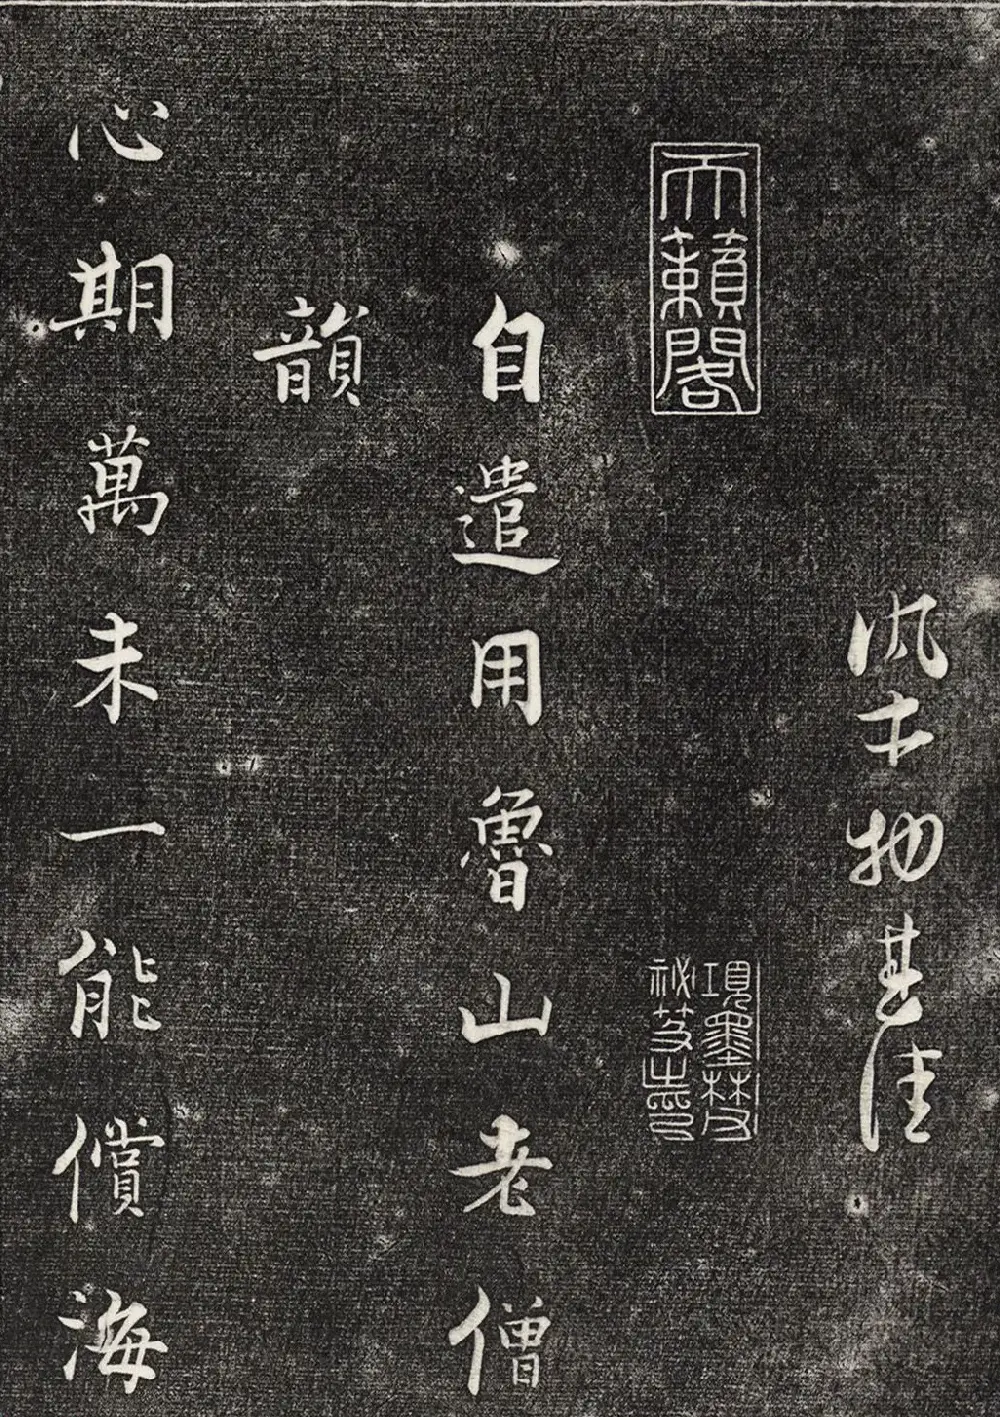 風土物甚佳
天籟閣
項墨林父
祕笈之印
自遣用魯山老僧
韻
心期萬未一能償海